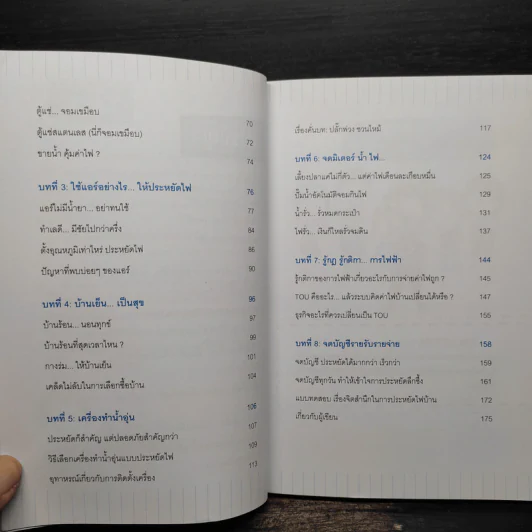 ตู้แช่... จอมเขมือบ 70
ตู้แช่สแตนเลส (นี่ก็จอมเขมือบ) 72
ขายน้ำ คุ้มค่าไฟ ? 74
บทที่ 3: ใช้แอร์อย่างไร... ให้ประหยัดไฟ 76
แอร์ไม่มีน้ำยา... อย่าทนใช้ 77
ทำเลดี... มีชัยไปกว่าครึ่ง 84
ตั้งอุณหภูมิเท่าไหร่ ประหยัดไฟ 86
ปัญหาที่พบบ่อยๆ ของแอร์ 90
บทที่ 4: บ้านเย็น... เป็นสุข 96
บ้านร้อน... นอนทุกข์ 97
บ้านร้อนที่สุดเวลาไหน ? 99
กางร่ม... ให้บ้านเย็น 101
เคล็ดไม่ลับในการเลือกซื้อบ้าน 104
บทที่ 5: เครื่องทำน้ำอุ่น 106
ประหยัดก็สำคัญ แต่ปลอดภัยสำคัญกว่า 107
วิธีเลือกเครื่องทำน้ำอุ่นแบบประหยัดไฟ 109
อุทาหรณ์เกี่ยวกับการติดตั้งเครื่อง 113
เรื่องคั่นบท: ปลั๊กพ่วง ชวนไหม้ 117
บทที่ 6: จดมิเตอร์ น้ำ ไฟ... 124
เลี้ยงปลาแค่ไม่กี่ตัว... แต่ค่าไฟเดือนละเกือบหมื่น 125
ปั๊มน้ำอัตโนมัติจอมกินไฟ 129
น้ำรั่ว... รั่วหมดกระเป๋า 131
ไฟรั่ว... เงินก็ไหลรั่วจมดิน 137
บทที่ 7: รู้กฎ รู้กติกา... การไฟฟ้า 144
รู้กติกาของการไฟฟ้าเกี่ยวอะไรกับการจ่ายค่าไฟถูก ? 145
TOU คืออะไร... แล้วระบบคิดค่าไฟบ้านเปลี่ยนได้หรือ ? 147
ธุรกิจอะไรที่ควรเปลี่ยนเป็น TOU 155
บทที่ 8: จดบัญชีรายรับรายจ่าย 158
จดบัญชี ประหยัดได้มากกว่า เร็วกว่า 159
จดบัญชีทุกวัน ทำให้เข้าใจการประหยัดลึกซึ้ง 161
แบบทดสอบ เรื่องจิตสำนึกในการประหยัดไฟบ้าน 172
เกี่ยวกับผู้เขียน 175